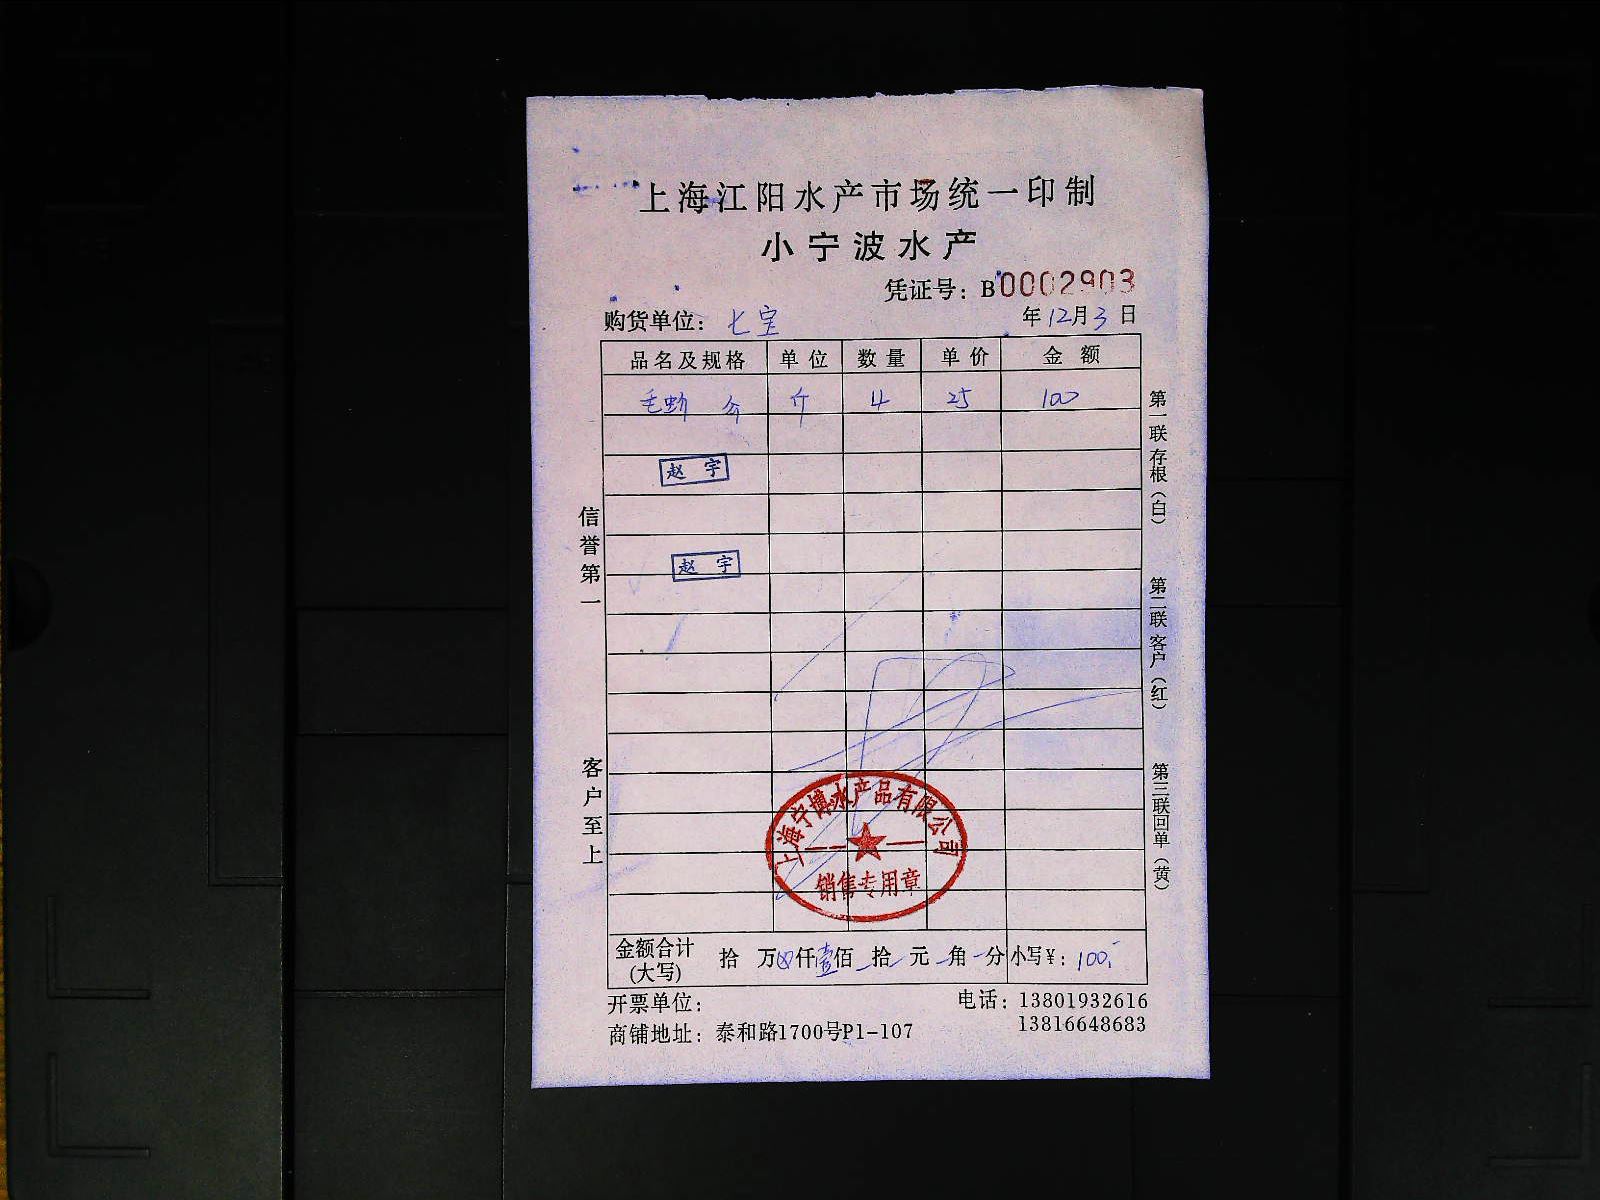 上海江阳水产市场统一印制
小宁波水产
凭证号：B0002903
购货单位：七宝 年12月3日
品名及规格 单位 数量 单价 金额
毛蚶 斤 4 25 100
赵宇
赵宇
信誉第一
客户至上
第一联存根（白）
第二联客户（红）
第三联回单（黄）
上海宁博水产品有限公司
销售专用章
金额合计(大写) 拾 万 仟壹佰 拾 元 角 分 小写￥：100
开票单位： 电话：13801932616
13816648683
商铺地址：泰和路1700号P1-107